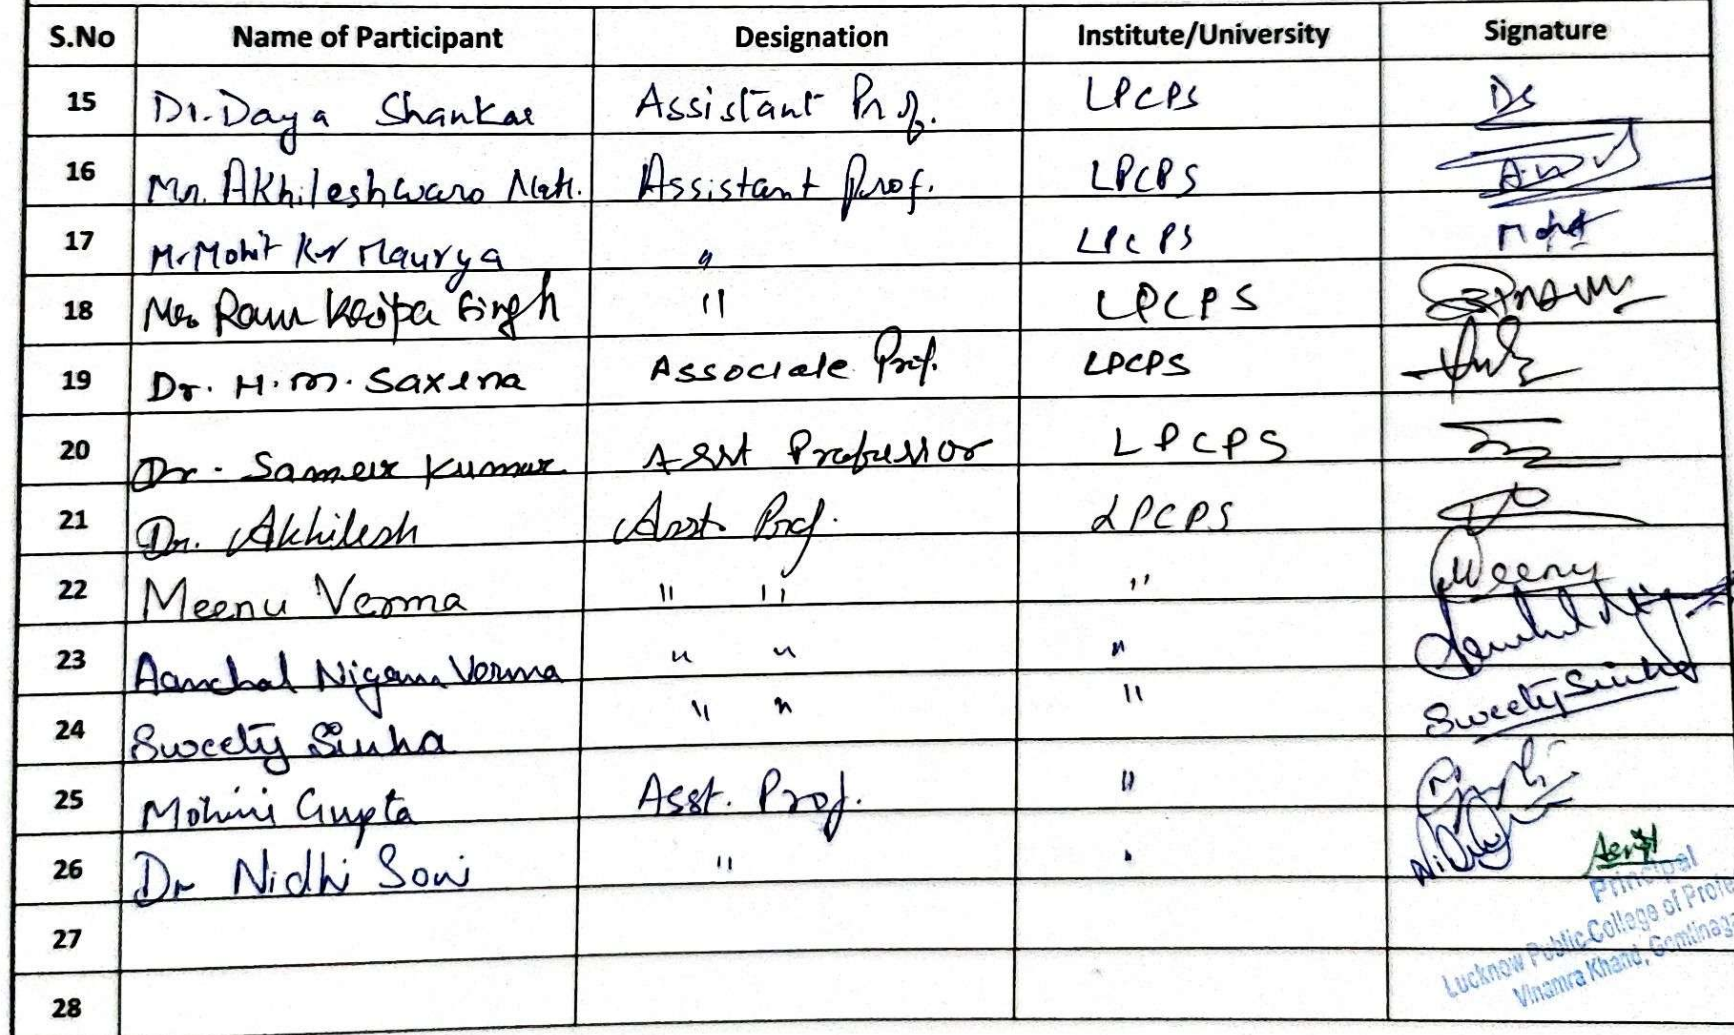 S.No Name of Participant Designation Institute/University Signature
15 Dr. Daya Shankar Assistant Prof. LPCPS DS
16 Mr. Akhileshwaro Nath. Assistant Prof. LPCPS
17 Mr Mohit Kr Maurya " LPCPS Mohit
18 Mr. Ram Kripa Singh " LPCPS
19 Dr. H.M. Saxena Associate Prof. LPCPS
20 Dr. Sameer Kumar Asst Professor LPCPS
21 Dr. Akhilesh Asst. Prof. LPCPS
22 Meenu Verma " " " Meenu
23 Aanchal Nigam Verma " " "
24 Sweety Sinha " " " Sweety Sinha
25 Mohini Gupta Asst. Prof. "
26 Dr Nidhi Soni " " Nidhi
27
28
Principal
Lucknow Public College of Profe
Vinamra Khand, Gomtinaga